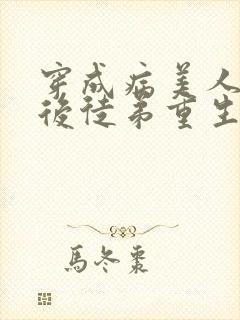 穿成病美人
後徒弟重生
馬冬棗